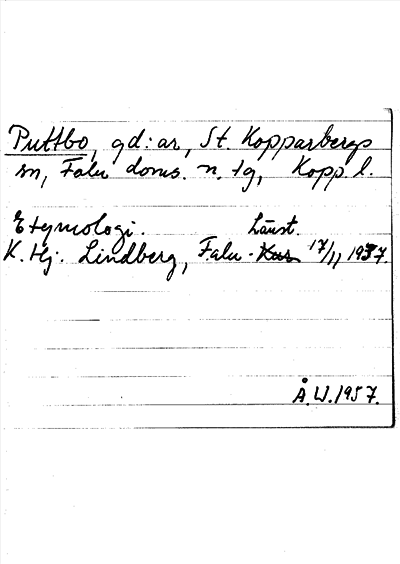 Puttbo, gd:ar, St. Kopparbergs
sn, Falu doms. n. tg, Kopp. l.
Etymologi.
Länst.
K. Hj. Lindberg, Falu-Kur 17/11 1937.
Å.W. 1957.